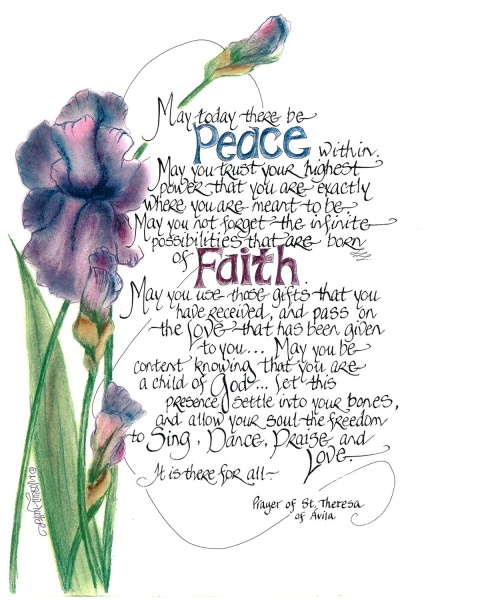 May today there be
Peace within.
May you trust your highest
power that you are exactly
where you are meant to be.
May you not forget the infinite
possibilities that are born
of Faith.
May you use those gifts that you
have received, and pass on
the love that has been given
to you... May you be
content knowing that you are
a child of God... Let this
presence settle into your bones,
and allow your soul the freedom
to Sing, Dance, Praise and
Love.
It is there for all~
Prayer of St. Theresa
of Avila